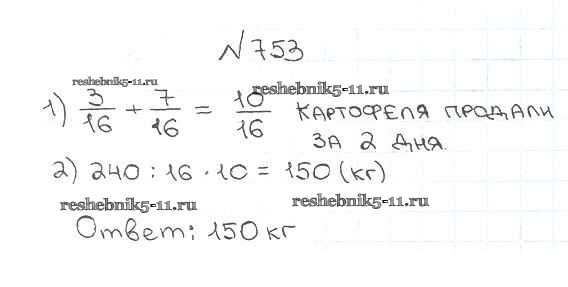 №753
reshebnik5-11.ru
reshebnik5-11.ru
1) 3/16 + 7/16 = 10/16 КАРТОФЕЛЯ ПРОДАЛИ
ЗА 2 ДНЯ.
2) 240 : 16 · 10 = 150 (кг)
reshebnik5-11.ru
reshebnik5-11.ru
Ответ: 150 кг